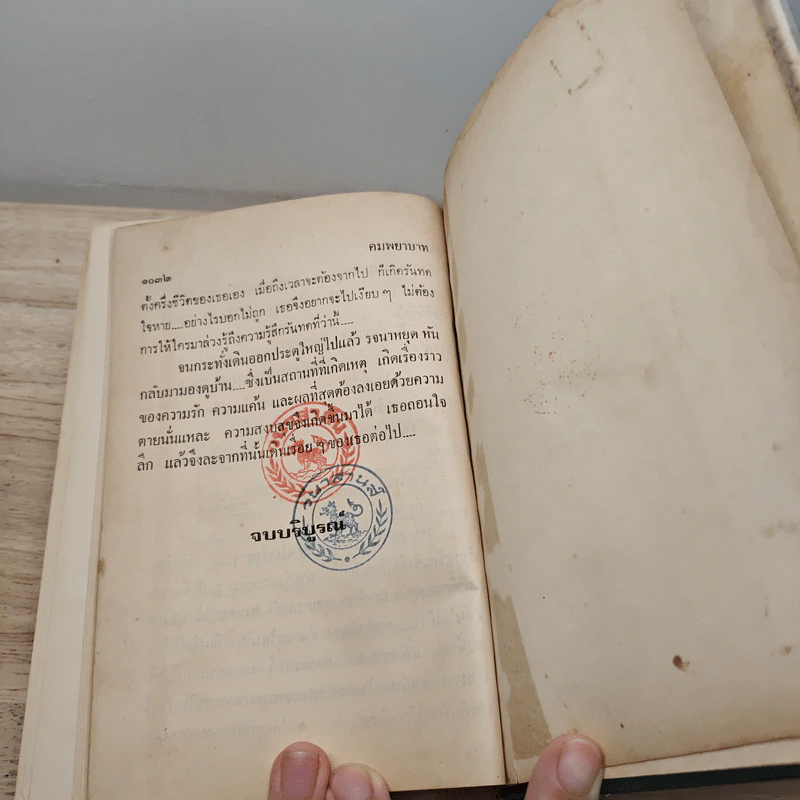 คมพยาบาท
๑๐๓๒
ตั้งครึ่งชีวิตของเธอเอง เมื่อถึงเวลาจะต้องจากไป ก็เกิดรันทด
ใจหาย....อย่างไรบอกไม่ถูก เธอจึงอยากจะไปเงียบ ๆ ไม่ต้อง
การให้ใครมาล่วงรู้ถึงความรู้สึกรันทดที่ว่านี้....
จนกระทั่งเดินออกประตูใหญ่ไปแล้ว รจนาหยุด หัน
กลับมามองดูบ้าน....ซึ่งเป็นสถานที่ที่เกิดเหตุ เกิดเรื่องราว
ของความรัก ความแค้น และผลที่สุดต้องลงเอยด้วยความ
ตายนั่นแหละ ความสงบสุขจึงเกิดขึ้นมาได้ เธอถอนใจ
ลึก แล้วจึงละจากที่นั้นเดินเรื่อย ๆ ของเธอต่อไป....
จบบริบูรณ์